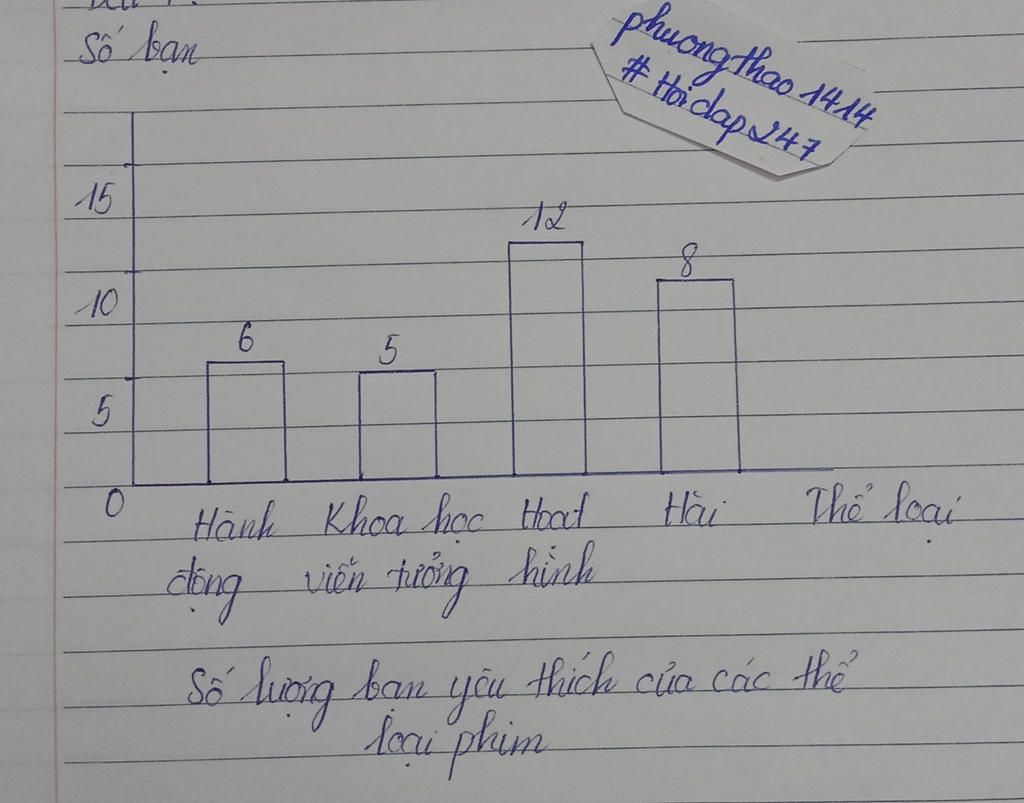 Số bạn
phuongthao1414
# Hoidap247
15
10
5
0
6
5
12
8
Hành Khoa học Hoạt Hài Thể loại
động viễn tưởng hình
Số lượng bạn yêu thích của các thể
loại phim